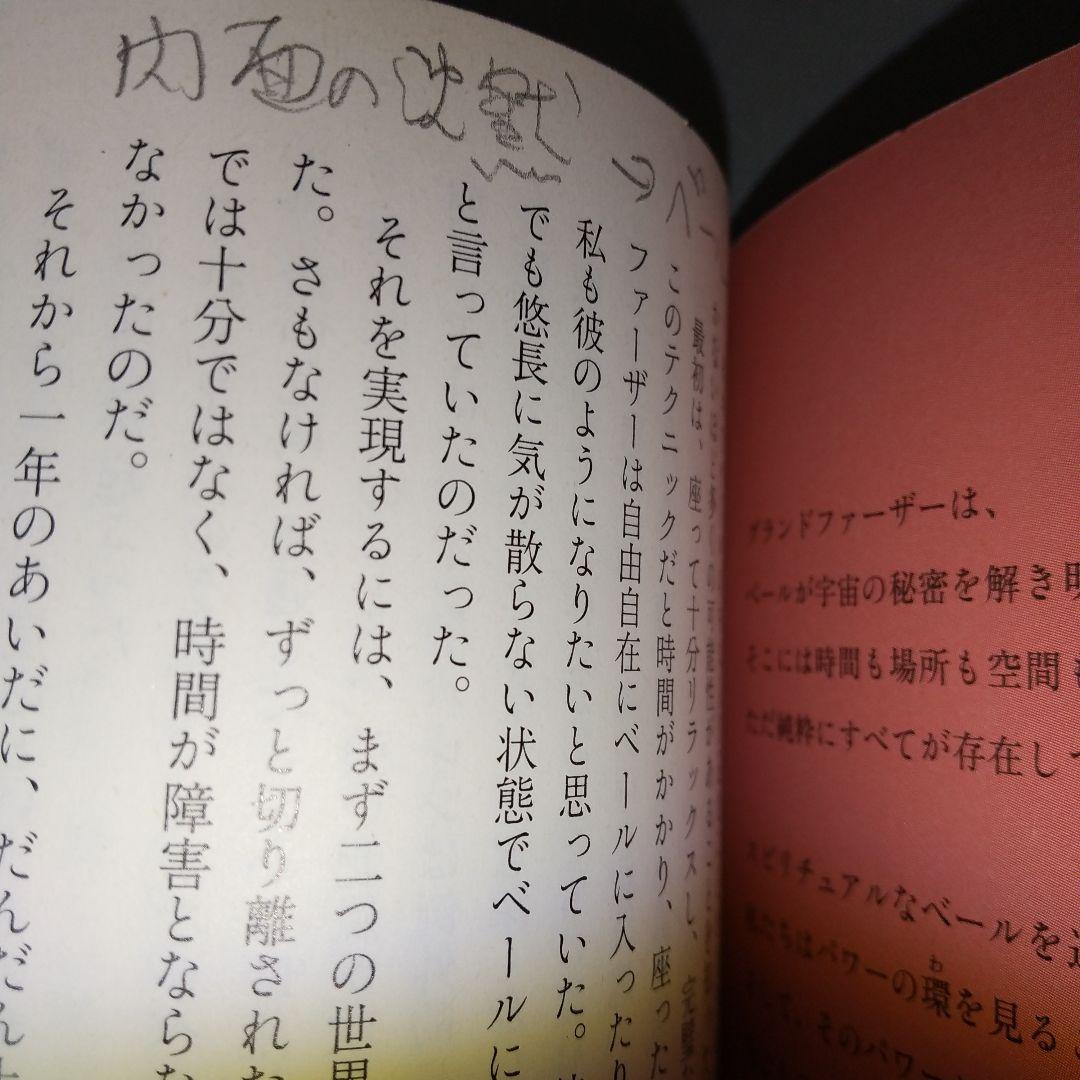 内面の沈黙
→ベー
最初は、座って十分リラックスし、
このテクニックだと時間がかかり、座った
ファーザーは自由自在にベールに入ったり
私も彼のようになりたいと思っていた。
でも悠長に気が散らない状態でベールに
と言っていたのだった。
それを実現するには、まず二つの世界
た。さもなければ、ずっと切り離された
では十分ではなく、時間が障害とならな
なかったのだ。
それから一年のあいだに、だんだん
グランドファーザーは、
ベールが宇宙の秘密を解き明
そこには時間も場所も空間も
ただ純粋にすべてが存在して
スピリチュアルなベールを
私たちはパワーの環を見る
わ
そして、そのパワー